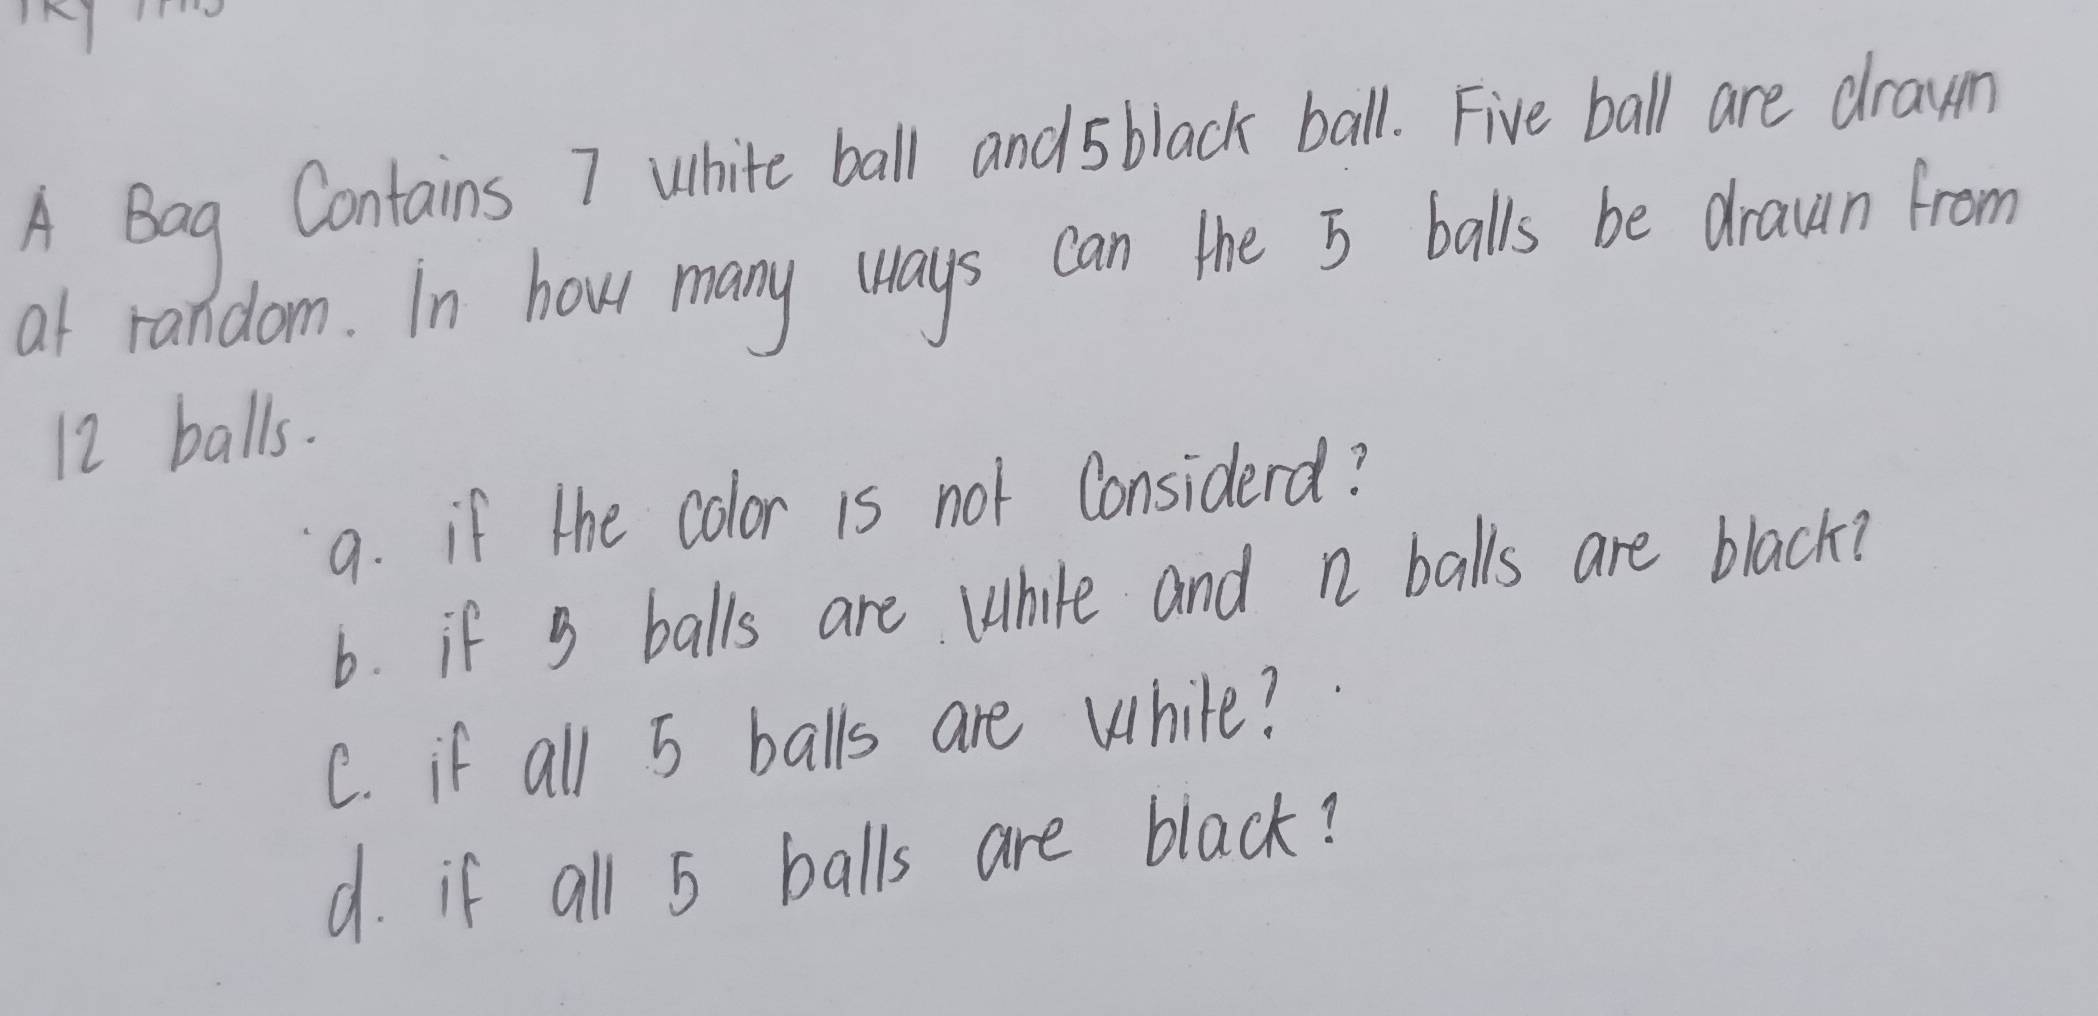 A Bag Contains 7 white ball and 5 black ball. Five ball are drawn
at random. In how many ways can the 5 balls be drawn from
12 balls.
a. if the color is not Considerd?
b. if 3 balls are white and 2 balls are black?
c. if all 5 balls are white?
d. if all 5 balls are black?